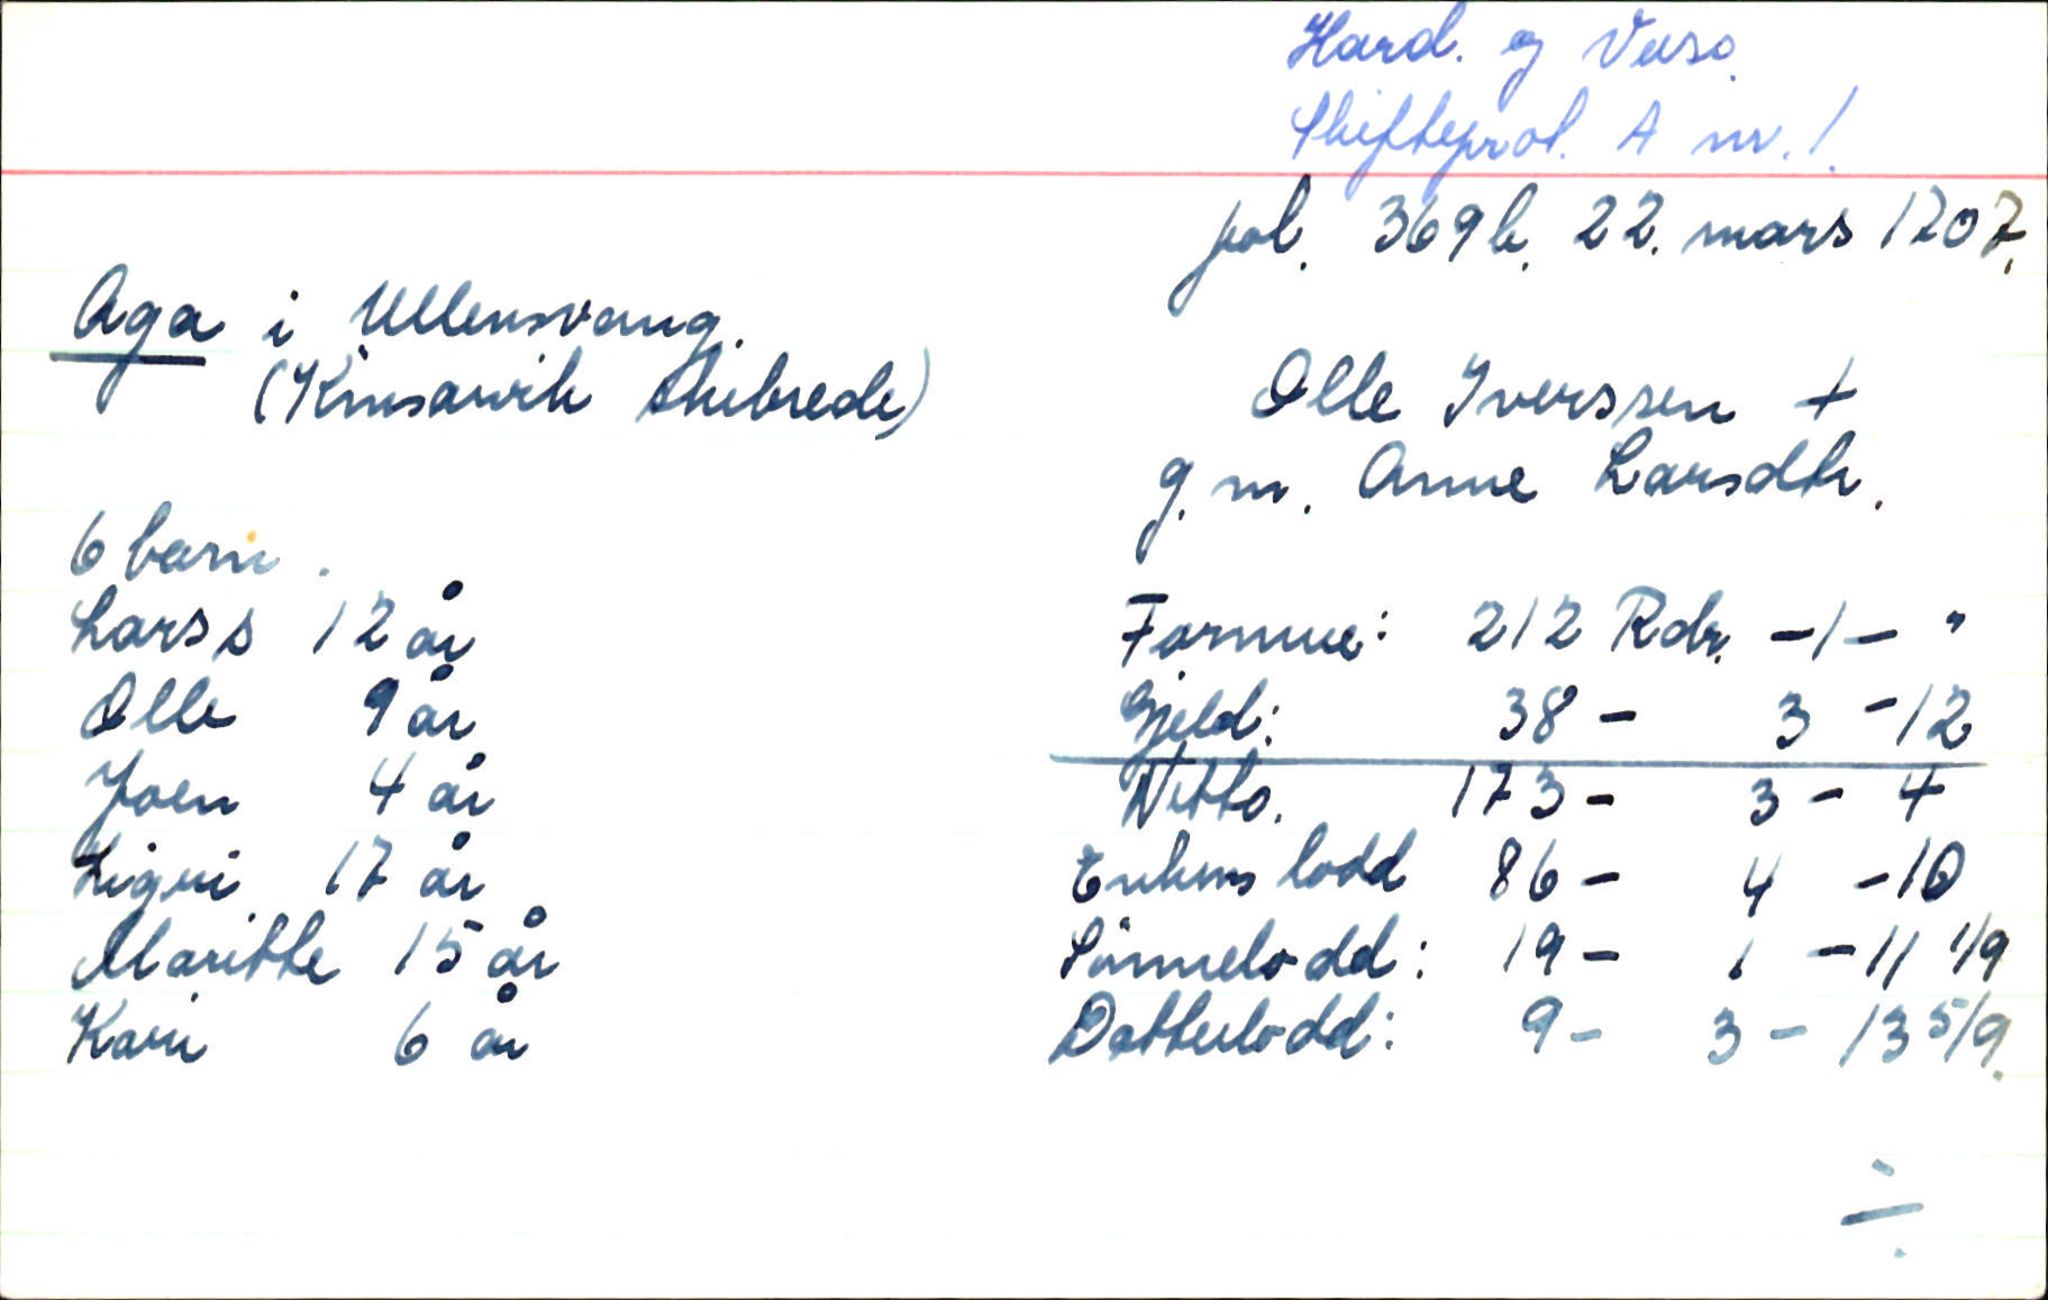 Hard. og Voss.
Skifteprot. A nr. 1.
fol. 369 b. 22. mars 1707.
Aga i Ullensvang.
(Kinsarvik skibrede)
Olle Iverssen +
g. m. Anne Larsdtr.
6 barn.
Larss 12 år
Olle 9 år
Joen 4 år
Sigvi 17 år
Maritte 15 år
Kari 6 år
Formue: 212 Rdr. - 1 - "
Gjeld: 38 - 3 - 12
Netto. 173 - 3 - 4
Enkens lodd 86 - 4 - 10
Sønnelodd: 19 - 1 - 11 1/9
Datterlodd: 9 - 3 - 13 5/9.
÷